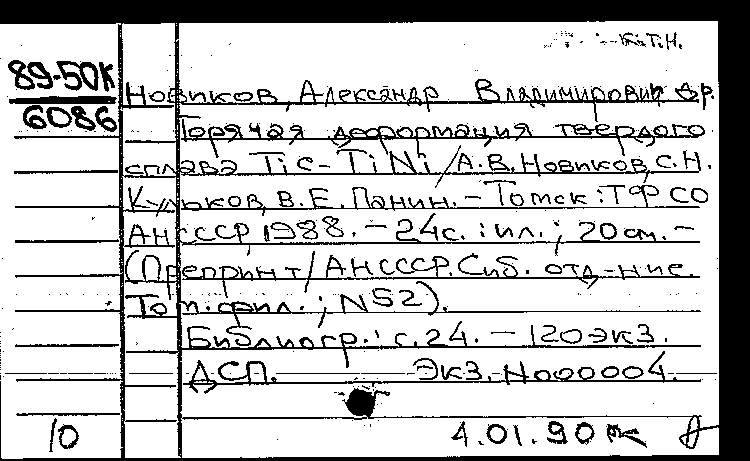 89-50К
6086
Новиков, Александр Владимирович др.
Горячая деформация твердого
сплава TiC-TiNi/А.В.Новиков, С.Н.
Кульков, В.Е.Панин.-Томск:ТФ СО
АНСССР, 1988.-24с.:ил.; 20см.-
(Препринт/АНСССР.Сиб. отд-ние.
Том.фил.; N52).
Библиогр.: с.24. - 120экз.
ДСП. Экз.N000004.
10 4.01.90